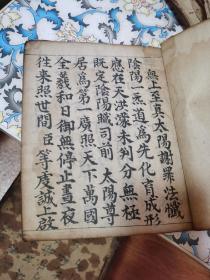 無上至真太陽謝罪法懺
陰陽一炁道為先化育成形
應在天洪濛未判分無極
既定陰陽職司前 太陽尊
居為第一廣照天下萬國
全羲和日御無停止晝夜
往來照世間 臣等虔誠上啟